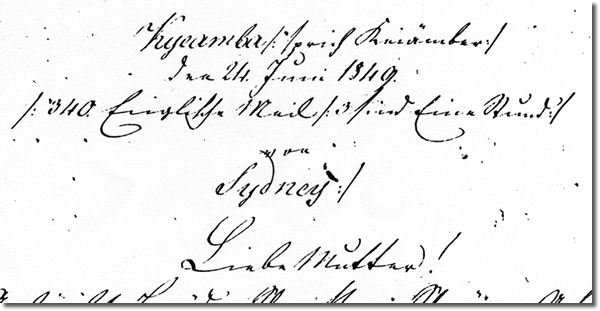 Kyeamba /: sprich Keiämber :/
den 24. Juni 1849.
/: 340. Englische Meil /: 3 sind Eine Stund :/
von
Sydney :/
Liebe Mutter!